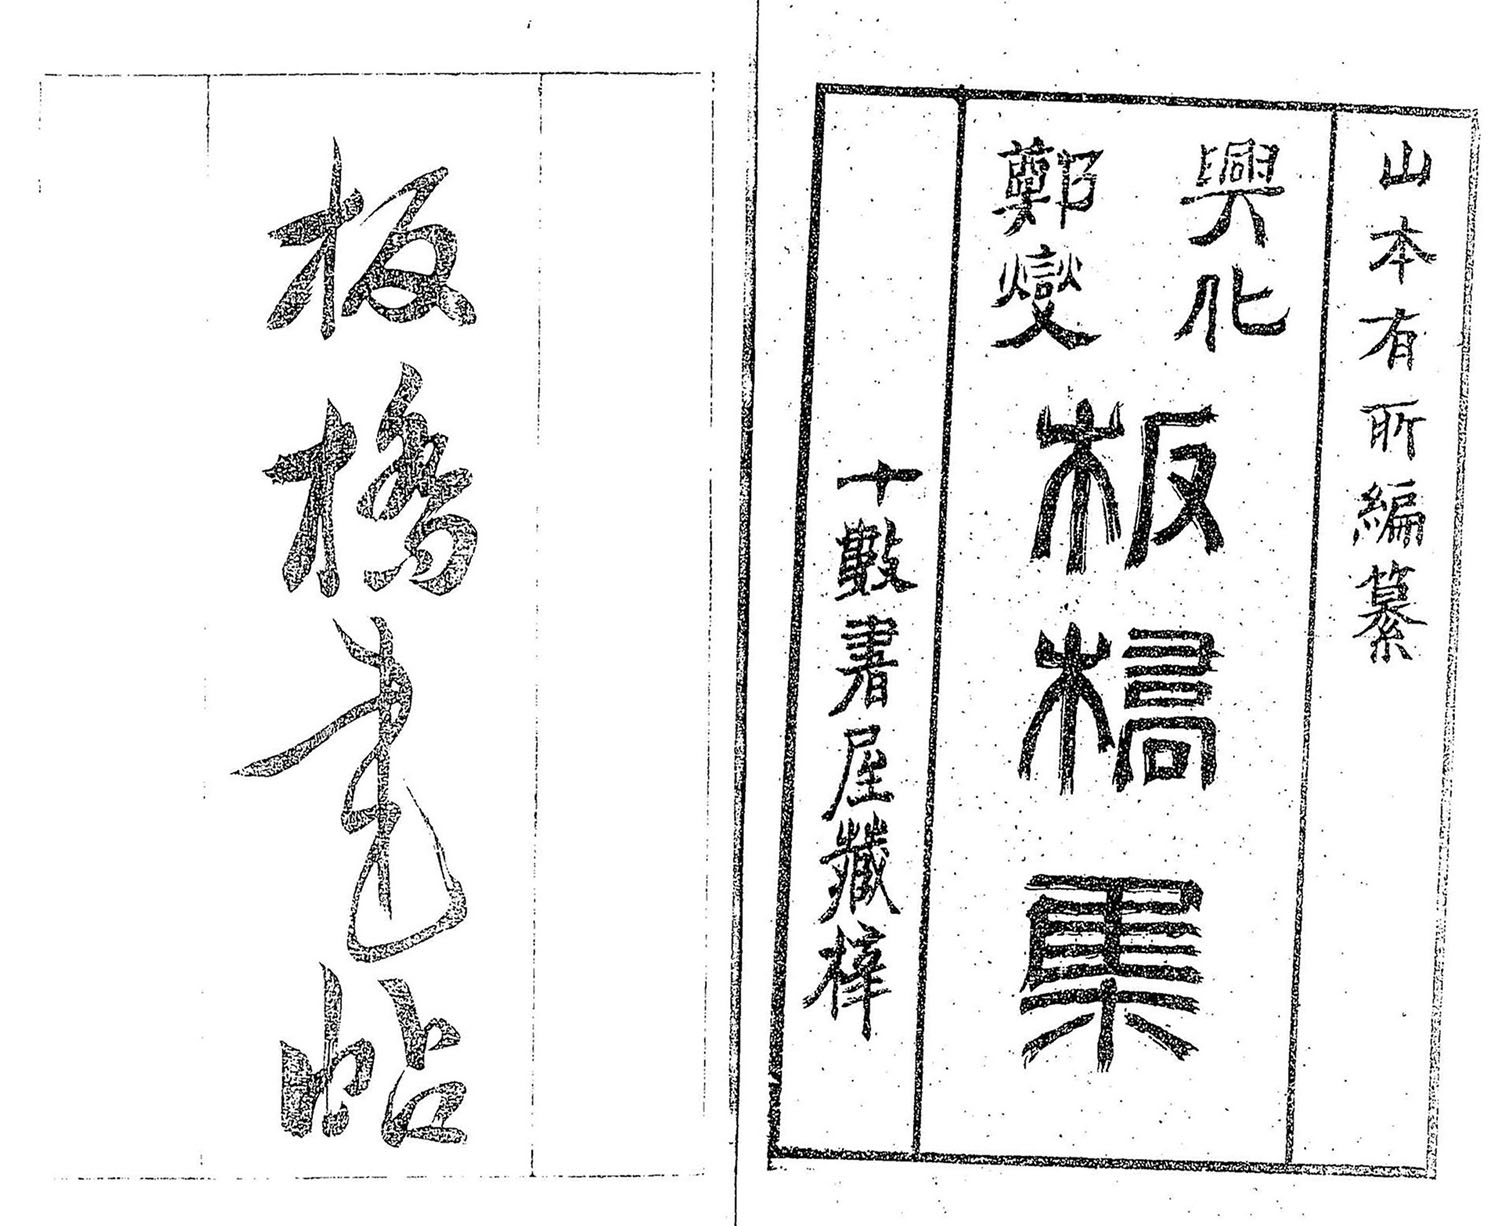 山本有所編纂
興化
鄭燮
板橋集
十數書屋藏梓
板橋書帖